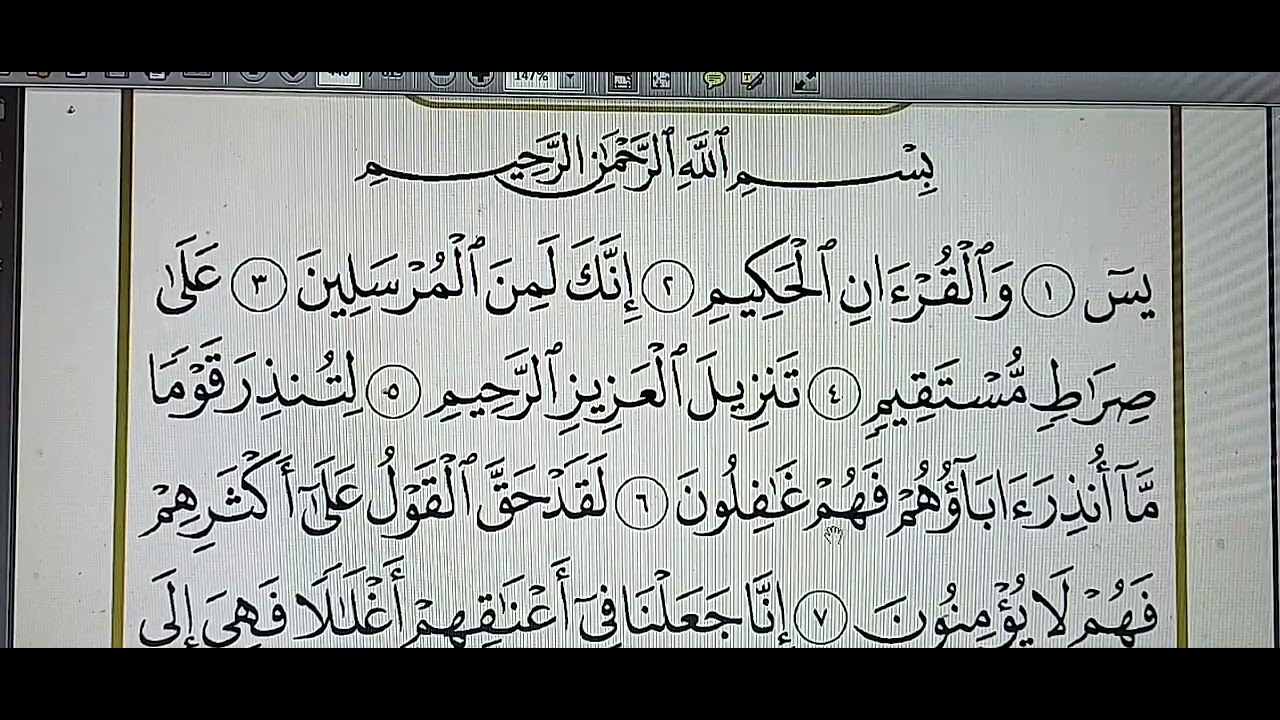 147%
بِسْمِ ٱللَّهِ ٱلرَّحْمَٰنِ ٱلرَّحِيمِ
يسٓ ١ وَٱلْقُرْءَانِ ٱلْحَكِيمِ ٢ إِنَّكَ لَمِنَ ٱلْمُرْسَلِينَ ٣ عَلَىٰ
صِرَٰطٍ مُّسْتَقِيمٍ ٤ تَنزِيلَ ٱلْعَزِيزِ ٱلرَّحِيمِ ٥ لِتُنذِرَ قَوْمًا
مَّآ أُنذِرَ ءَابَآؤُهُمْ فَهُمْ غَٰفِلُونَ ٦ لَقَدْ حَقَّ ٱلْقَوْلُ عَلَىٰٓ أَكْثَرِهِمْ
فَهُمْ لَا يُؤْمِنُونَ ٧ إِنَّا جَعَلْنَا فِىٓ أَعْنَٰقِهِمْ أَغْلَٰلًا فَهِىَ إِلَى